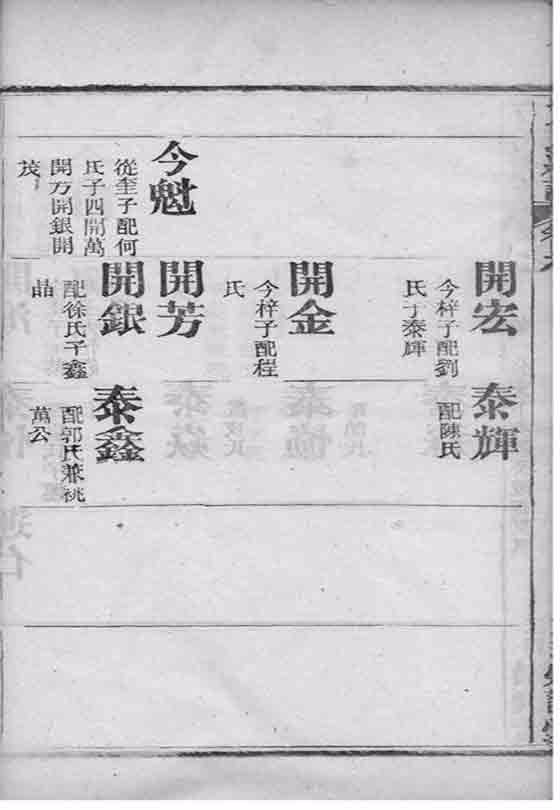 開宏
今梓子配劉
氏子泰輝
泰輝
配陳氏
開金
今梓子配程
氏
今魁
從奎子配何
氏子四開萬
開方開銀開
茂
開芳
開銀
配徐氏子鑫
晶
泰鑫
配郭氏兼祧
萬公